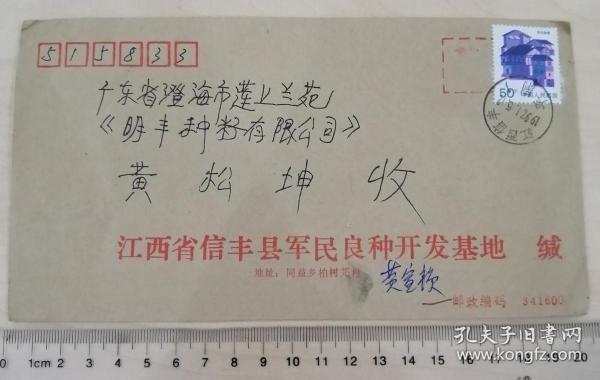 515833
50
广东省澄海市莲上兰苑
《明丰种籽有限公司》
黄松坤 收
江西省信丰县军民良种开发基地 缄
地址：同益乡柏树
邮政编码 341600
孔夫子旧书网
www.kongfz.com
0 1cm 2 3 4 5 6 7 8 9 10 11 12 13 14 15 16 17 18 19 20